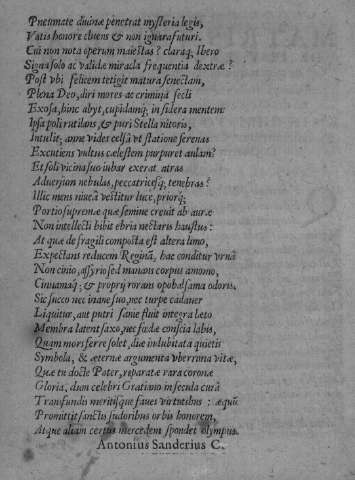 Pneumate diuinæ penetrat mysteria legis,
Vatis honore cluens & non ignara futuri.
Cui non nota operum maiestas? claraq; libero
Signa solo ac validæ miracla frequentia dextræ?
Post vbi felicem tetigit matura senectam,
Plena Deo, diri mores ac crimina secli
Exosa, hinc abyt, cupidamq; in sidera mentem
Ipsa poli rutilans, & puri Stella nitoris,
Intulit; anne vides celsâ vt statione serenas
Excutiens vultus cælestem purpuret aulam?
Et soli vicina suo iubar exerat atras
Aduersum nebulas, peccatricesq; tenebras?
Illic mens niueâ vestitur luce, priorq;
Portio supremæ quæ semine creuit ab auræ
Non intellecti bibit ebria nectaris haustus:
At quæ de fragili composta est altera limo,
Expectans reducem Reginã, hac conditur vrnâ
Non cinio, assyrio sed manans corpus amomo,
Cinnamaq; & proprij rorans opobalsama odoris.
Sic succo nec inane suo, nec turpe cadauer
Liquitur, aut putri sanie fluit integra leto
Membra latent saxo, nec fœdæ conscia labis,
Quam mors ferre solet, diæ indubitata quietis
Symbola, & æternæ argumenta vberrima vitæ,
Quæ tu docte Pater, reparatæ rara coronæ
Gloria, dum celebri Gratiano in secula curâ
Transfundis meritisque faues virtutibus: æquũ
Promittit sanctis sudoribus orbis honorem,
Atque aliam certus mercedem spondet olympus.
Antonius Sanderius C.